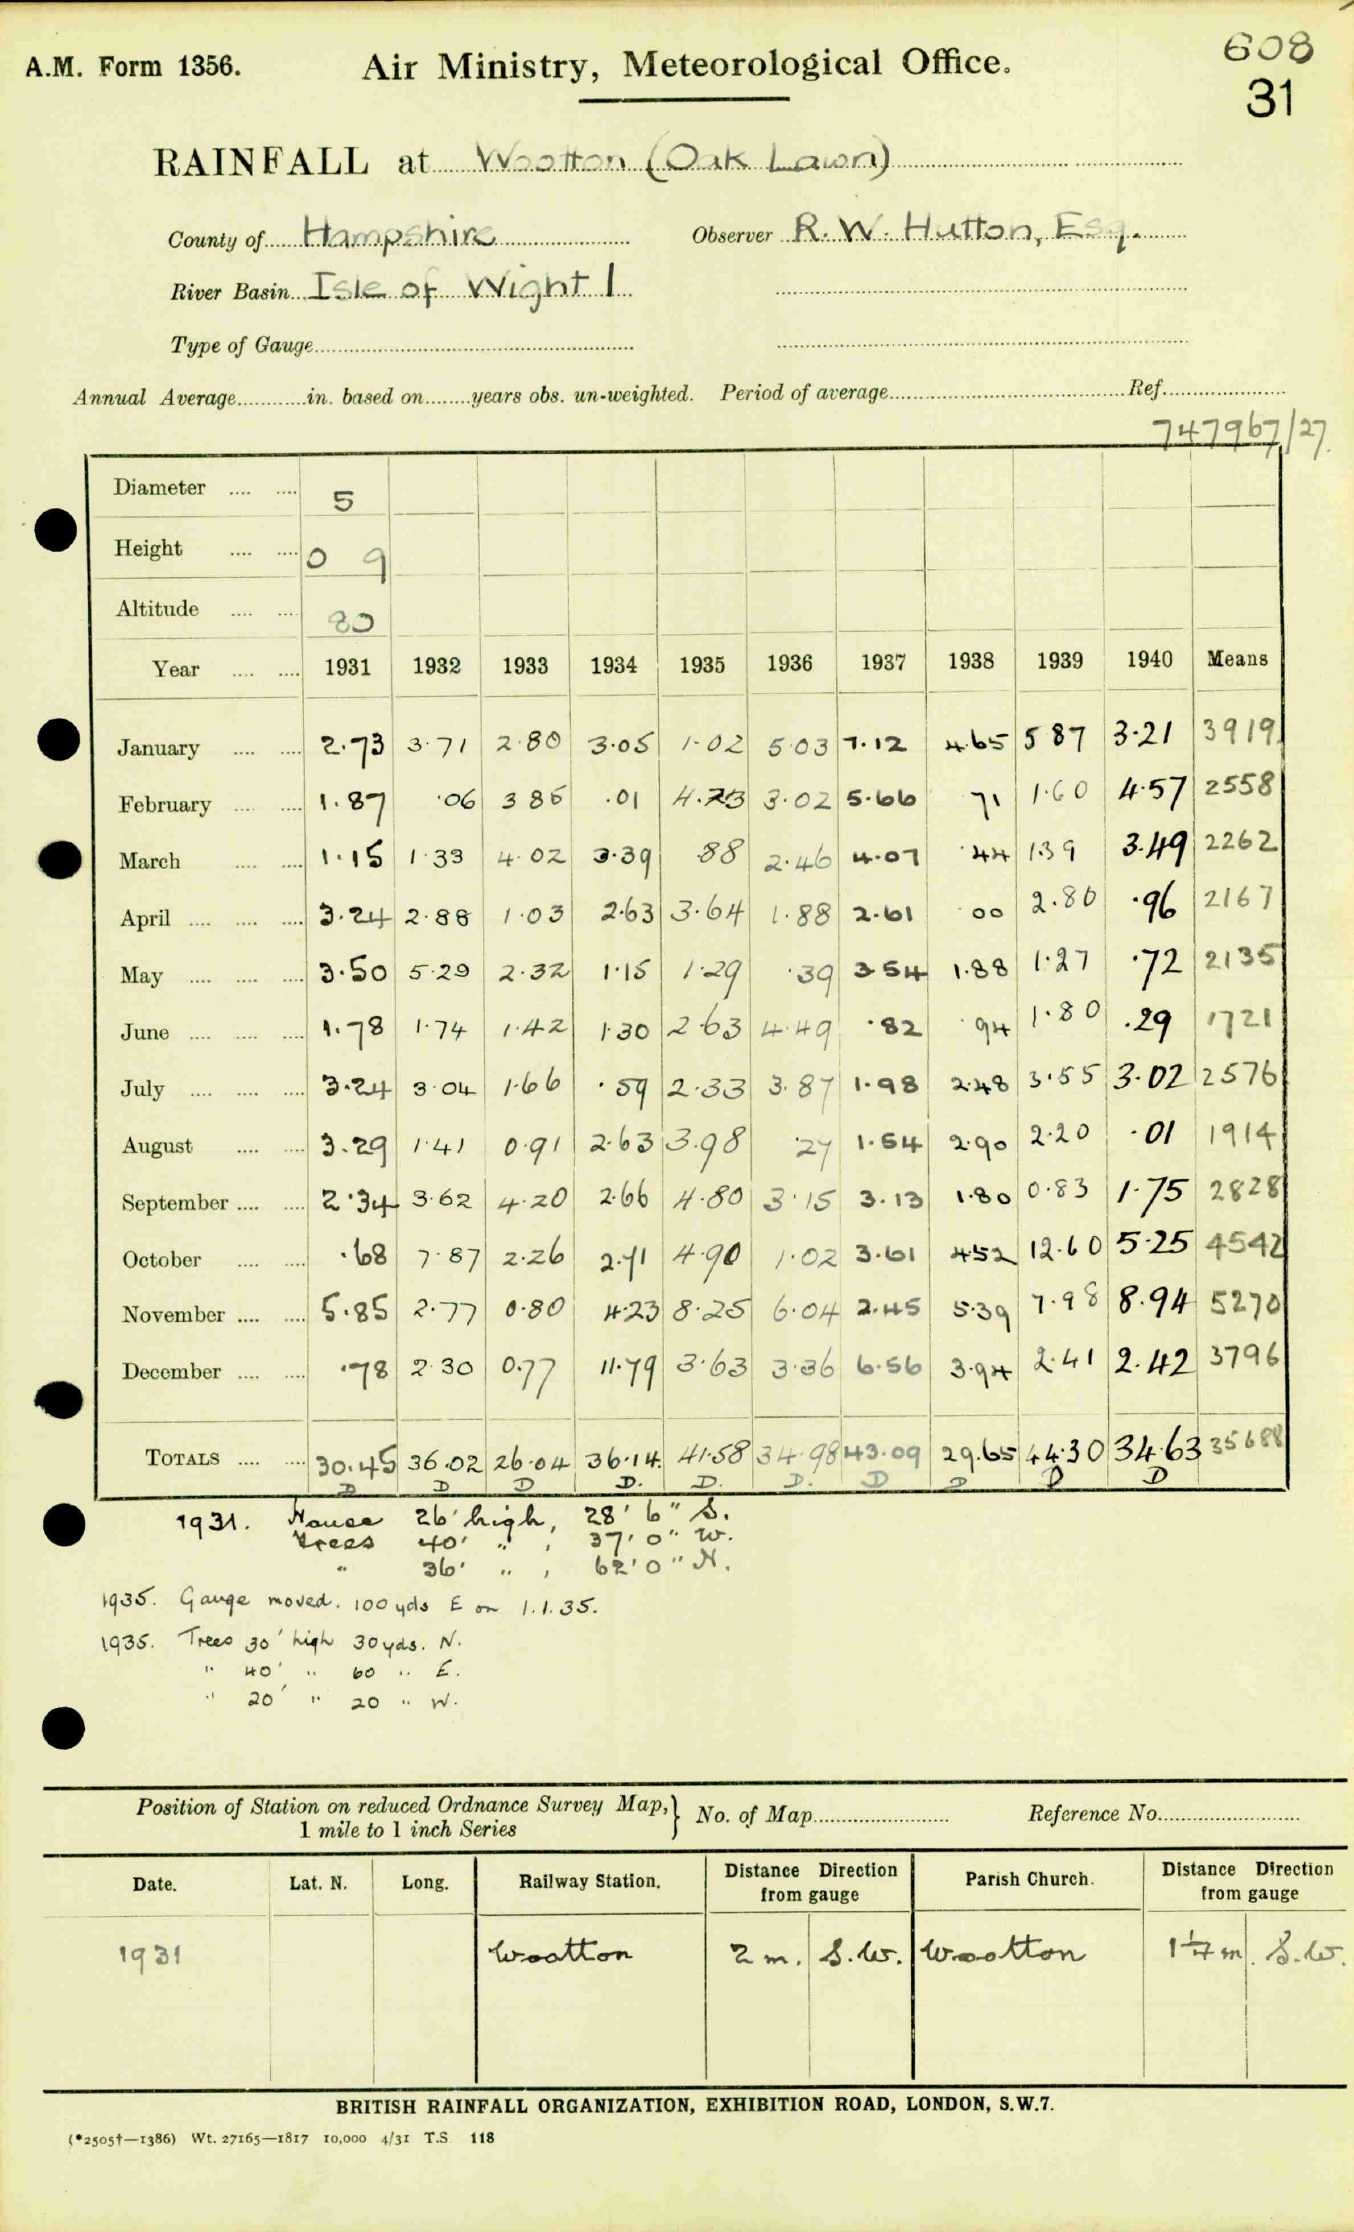 A.M. Form 1356.
Air Ministry, Meteorological Office.
608
31
RAINFALL at Wootton (Oak Lawn)
County of Hampshire Observer R. W. Hutton, Esq.
River Basin Isle of Wight 1
Type of Gauge
Annual Average in. based on years obs. un-weighted. Period of average Ref.
747967/27.
Diameter 5
Height 0 9
Altitude 80
Year 1931 1932 1933 1934 1935 1936 1937 1938 1939 1940 Means
January 2.73 3.71 2.80 3.05 1.02 5.03 7.12 4.65 5 87 3.21 3919
February 1.87 .06 3 86 .01 4.23 3.02 5.66 71 1.60 4.57 2558
March 1.15 1.33 4.02 3.39 .88 2.46 4.07 .44 1.39 3.49 2262
April 3.24 2.88 1.03 2.63 3.64 1.88 2.61 00 2.80 .96 2167
May 3.50 5.29 2.32 1.15 1.29 .39 3 54 1.88 1.27 .72 2135
June 1.78 1.74 1.42 1.30 2.63 4.49 .82 .94 1.80 .29 1721
July 3.24 3.04 1.66 .59 2.33 3.87 1.98 2.48 3.55 3.02 2576
August 3.29 1.41 0.91 2.63 3.98 .27 1.54 2.90 2.20 .01 1914
September 2.34 3.62 4.20 2.66 4.80 3.15 3.13 1.80 0.83 1.75 2828
October .68 7.87 2.26 2.71 4.90 1.02 3.61 4.52 12.60 5.25 4542
November 5.85 2.77 0.80 4.23 8.25 6.04 2.45 5.39 7.98 8.94 5270
December .78 2.30 0.77 11.79 3.63 3.36 6.56 3.94 2.41 2.42 3796
TOTALS 30.45 36.02 26.04 36.14 41.58 34.98 43.09 29.65 44.30 34.63 35688
D D D D. D. D. D D D D
1931. House 26' high, 28' 6" S.
Trees 40' " , 37' 0" W.
" 36' " , 62' 0" N.
1935. Gauge moved. 100 yds E on 1.1.35.
1935. Trees 30' high 30 yds. N.
" 40' " 60 " E.
" 20' " 20 " W.
Position of Station on reduced Ordnance Survey Map, } No. of Map Reference No.
1 mile to 1 inch Series
Date. Lat. N. Long. Railway Station. Distance Direction from gauge Parish Church. Distance Direction from gauge
1931 Wootton 2 m. S.W. Wootton S.W.
BRITISH RAINFALL ORGANIZATION, EXHIBITION ROAD, LONDON, S.W.7.
(*2505†—1386) Wt. 27165—1817 10,000 4/31 T.S 118